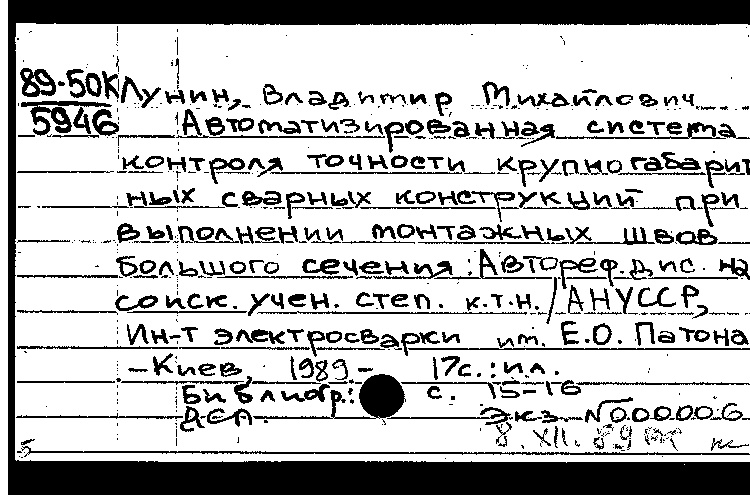 89-50К Лунин, Владимир Михайлович
5946 Автоматизированная система
контроля точности крупногабарит
ных сварных конструкций при
выполнении монтажных швов
большого сечения: Автореф. дис. на
соиск. учен. степ. к.т.н. / АНУССР,
Ин-т электросварки им. Е.О. Патона
-Киев, 1989 - 17с.: ил.
Библиогр.: с. 15-16
ДСП. Экз. №000006
8. XII. 89
5